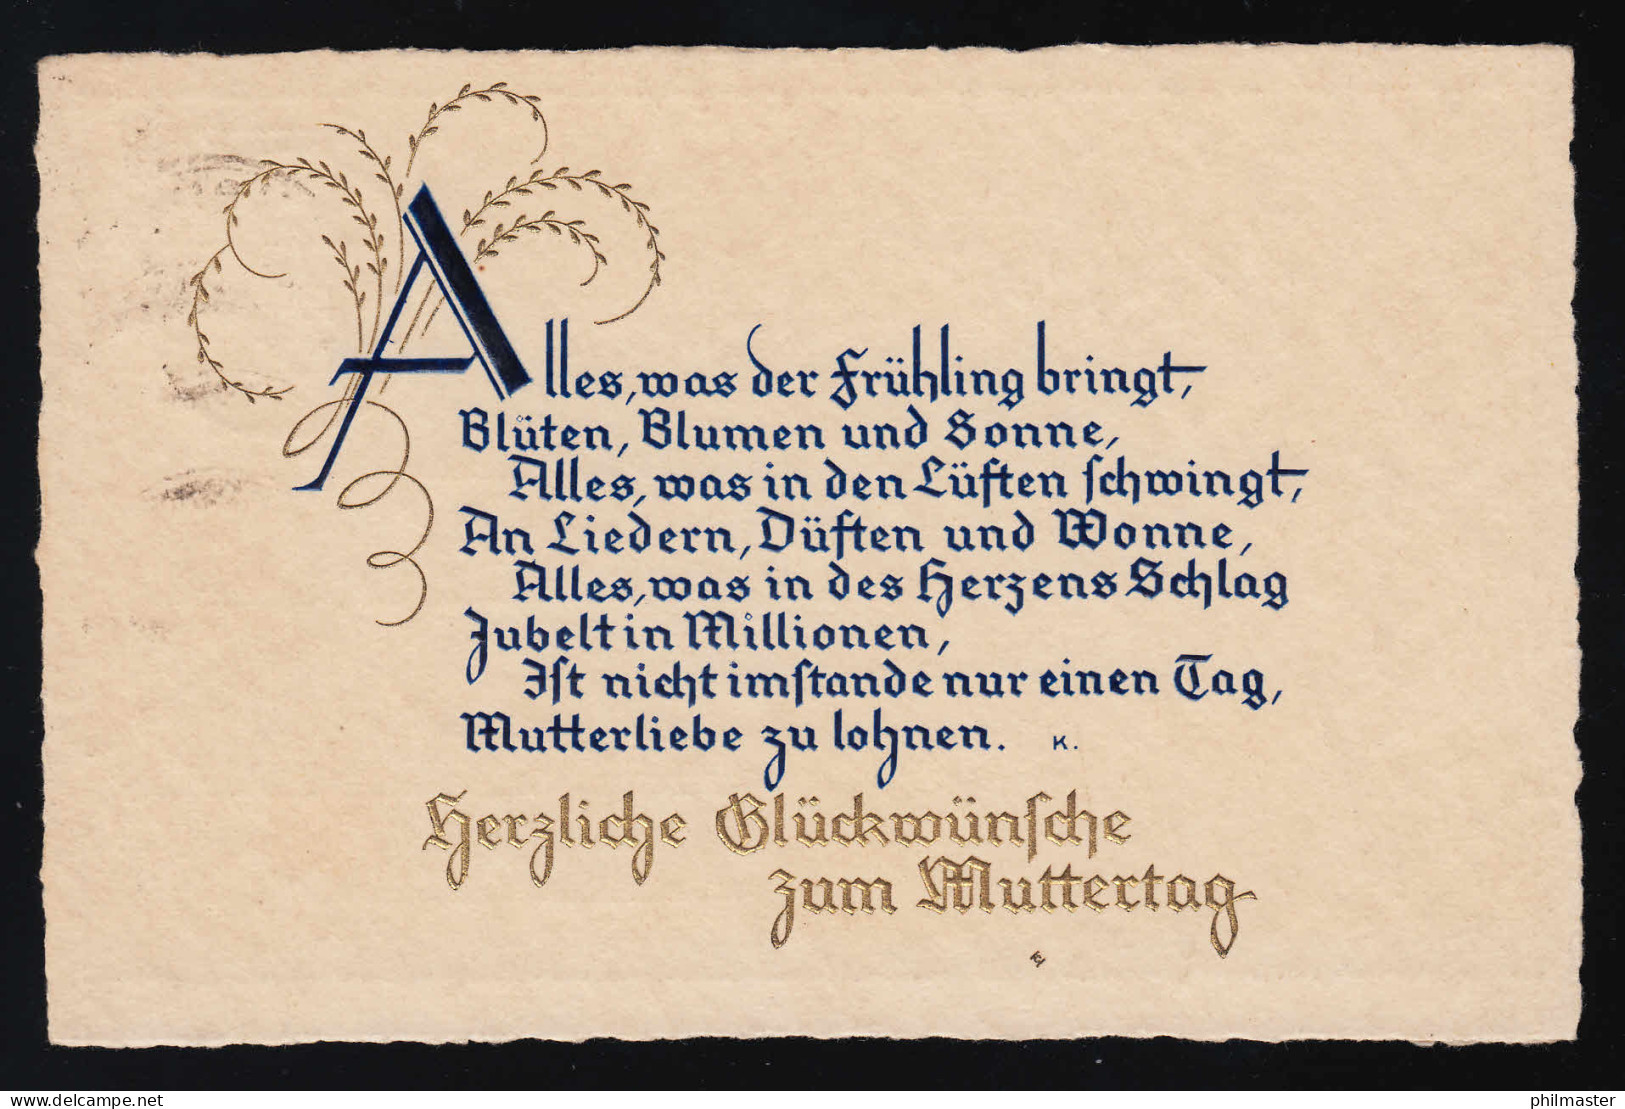 Alles, was der Frühling bringt,
Blüten, Blumen und Sonne,
Alles, was in den Lüften schwingt,
An Liedern, Düften und Wonne,
Alles, was in des Herzens Schlag
Jubelt in Millionen,
Ist nicht imstande nur einen Tag,
Mutterliebe zu lohnen. K.
Herzliche Glückwünsche
zum Muttertag
delcampe.net
philmaster